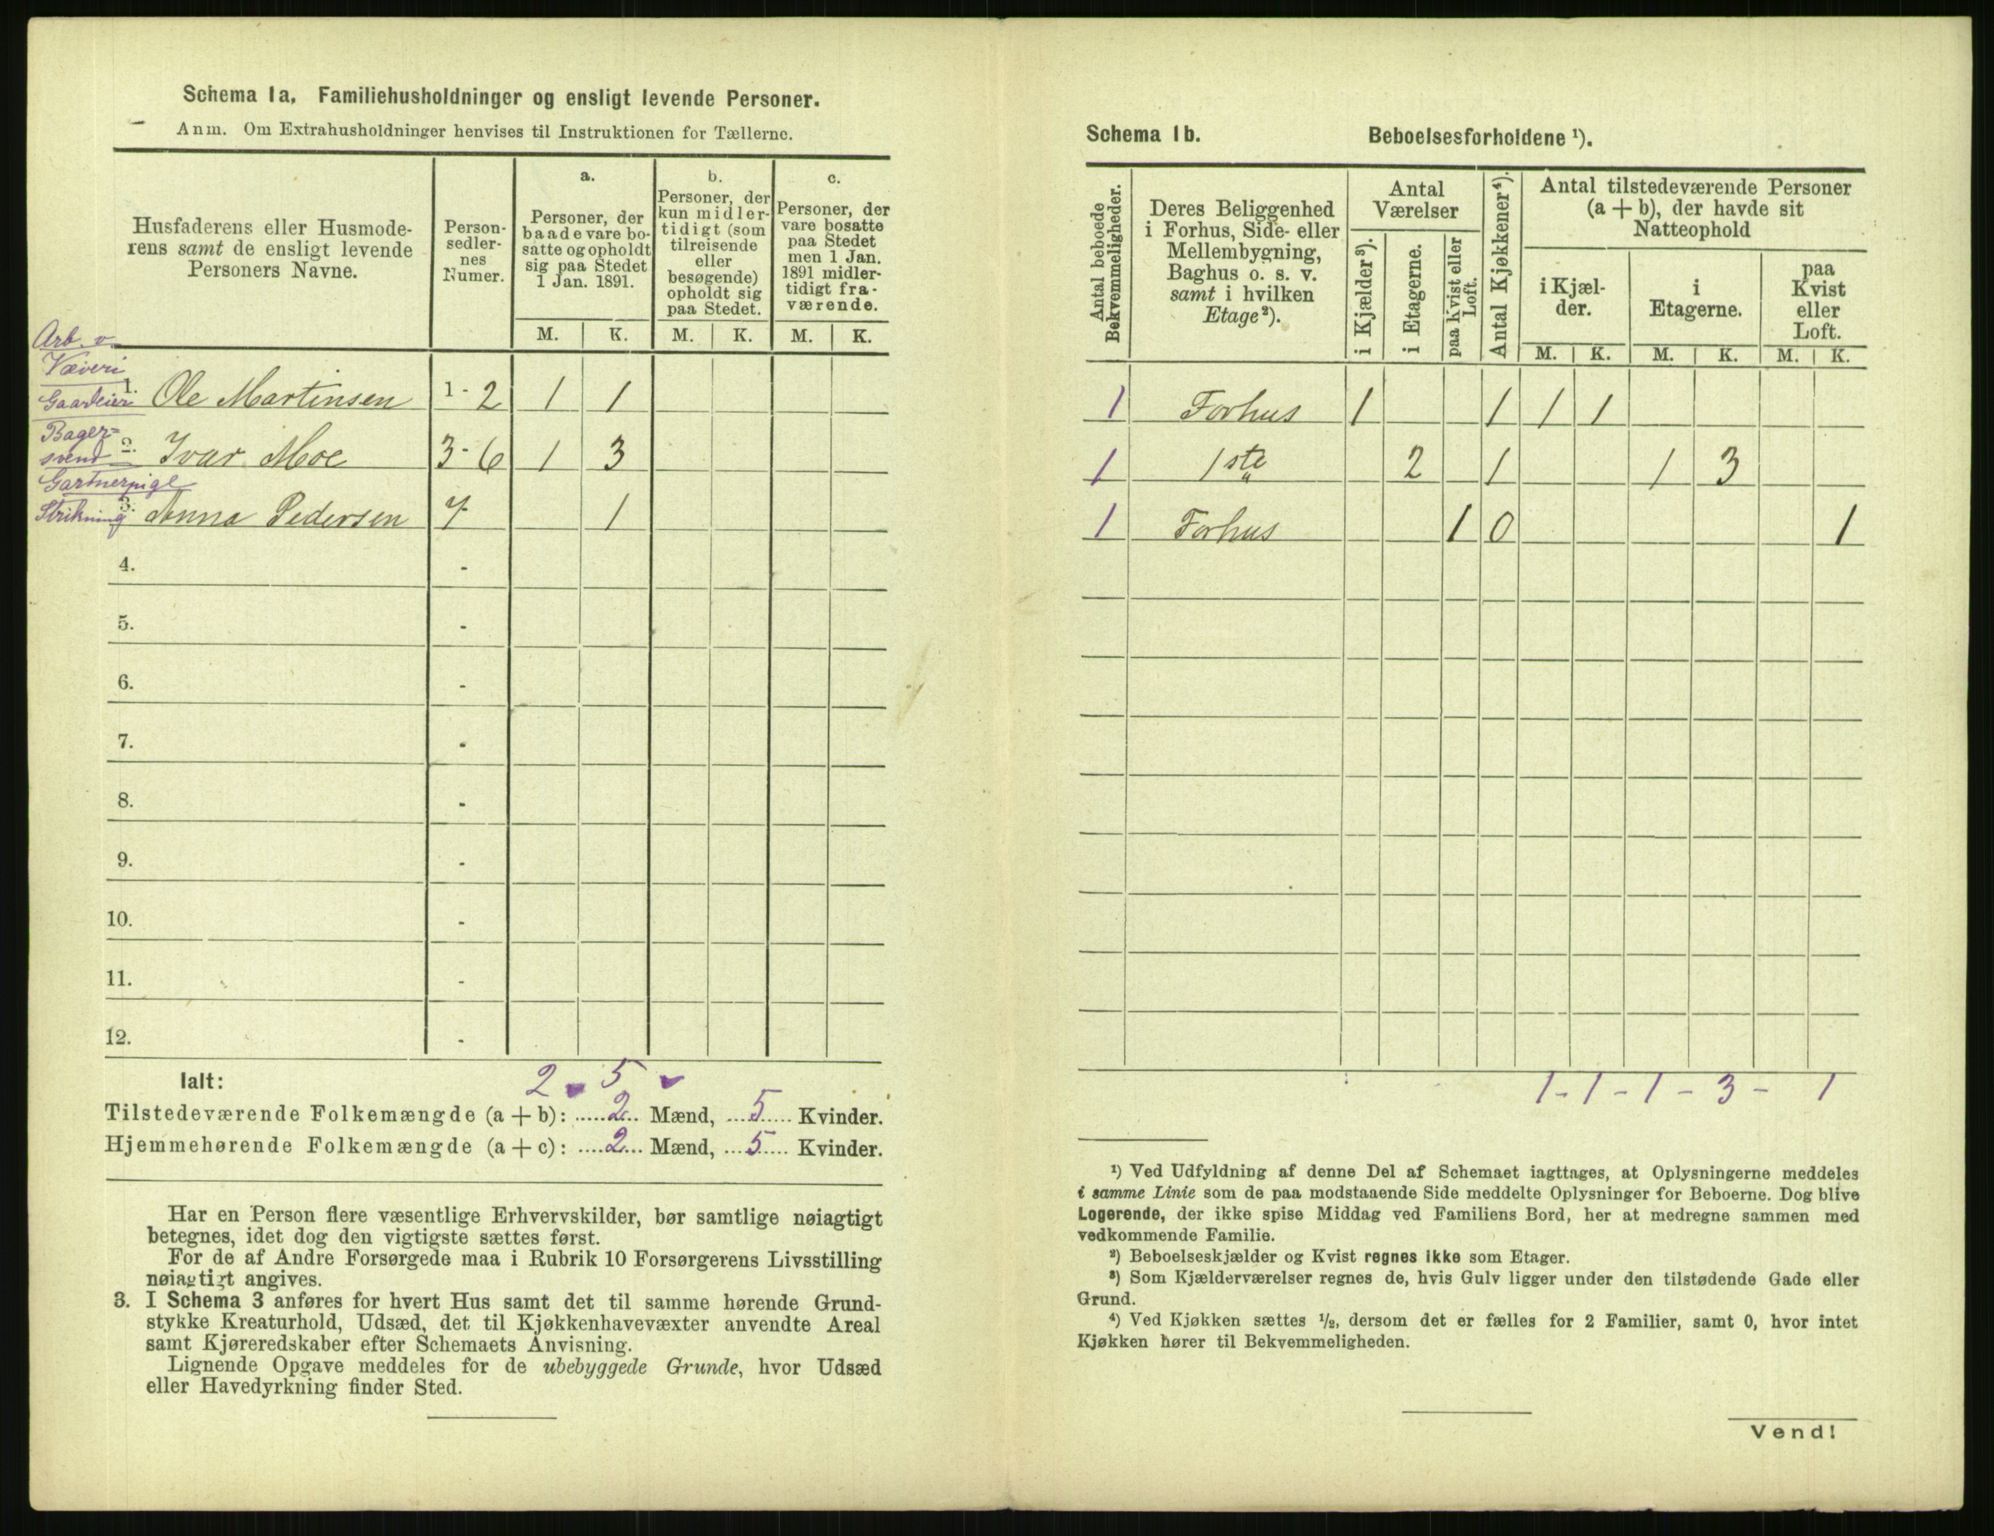 Schema 1a. Familiehusholdninger og ensligt levende Personer.
Anm. Om Extrahusholdninger henvises til Instruktionen for Tællerne.
Husfaderens eller Husmode-
rens samt de ensligt levende
Personers Navne.
Person-
sedler-
nes
Numer.
a.
Personer, der
baade vare bo-
satte og opholdt
sig paa Stedet
1 Jan. 1891.
b.
Personer, der
kun midler-
tidigt (som
tilreisende
eller
besøgende)
opholdt sig
paa Stedet.
c.
Personer, der
vare bosatte
paa Stedet
men 1 Jan.
1891 midler-
tidigt fra-
værende.
M. K. M. K. M. K.
Arb. v.
Væveri
Gaardeier
1. Ole Martinsen 1 - 2 1 1
Bager-
svend
2. Ivar Moe 3 - 6 1 3
Gartnerpige
Strikning
3. Anna Pedersen 7 1
4. -
5. -
6. -
7. -
8. -
9. -
10. -
11. -
12. -
Ialt: 2 5
Tilstedeværende Folkemængde (a + b): 2 Mænd, 5 Kvinder.
Hjemmehørende Folkemængde (a + c): 2 Mænd, 5 Kvinder.
Har en Person flere væsentlige Erhvervskilder, bør samtlige nøiagtigt
betegnes, idet dog den vigtigste sættes først.
For de af Andre Forsørgede maa i Rubrik 10 Forsørgerens Livsstilling
nøiagtigt angives.
3. I Schema 3 anføres for hvert Hus samt det til samme hørende Grund-
stykke Kreaturhold, Udsæd, det til Kjøkkenhavevæxter anvendte Areal
samt Kjøreredskaber efter Schemaets Anvisning.
Lignende Opgave meddeles for de ubebyggede Grunde, hvor Udsæd
eller Havedyrkning finder Sted.
Schema 1b. Beboelsesforholdene ¹).
Antal beboede
Bekvemmeligheder.
Deres Beliggenhed
i Forhus, Side- eller
Mellembygning,
Baghus o. s. v.
samt i hvilken
Etage²).
Antal
Værelser
i Kjælder³).
i Etagerne.
paa Kvist eller
Loft.
Antal Kjøkkener⁴).
Antal tilstedeværende Personer
(a + b), der havde sit
Natteophold
i Kjæl-
der.
i
Etagerne.
paa
Kvist
eller
Loft.
M. K. M. K. M. K.
1 Forhus 1 1 1 1
1 1ste 2 1 1 3
1 Forhus 1 0 1
1 - 1 - 1 - 3 - 1
¹) Ved Udfyldning af denne Del af Schemaet iagttages, at Oplysningerne meddeles
i samme Linie som de paa modstaaende Side meddelte Oplysninger for Beboerne. Dog blive
Logerende, der ikke spise Middag ved Familiens Bord, her at medregne sammen med
vedkommende Familie.
²) Beboelseskjælder og Kvist regnes ikke som Etager.
³) Som Kjælderværelser regnes de, hvis Gulv ligger under den tilstødende Gade eller
Grund.
⁴) Ved Kjøkken sættes ½, dersom det er fælles for 2 Familier, samt 0, hvor intet
Kjøkken hører til Bekvemmeligheden.
Vend!